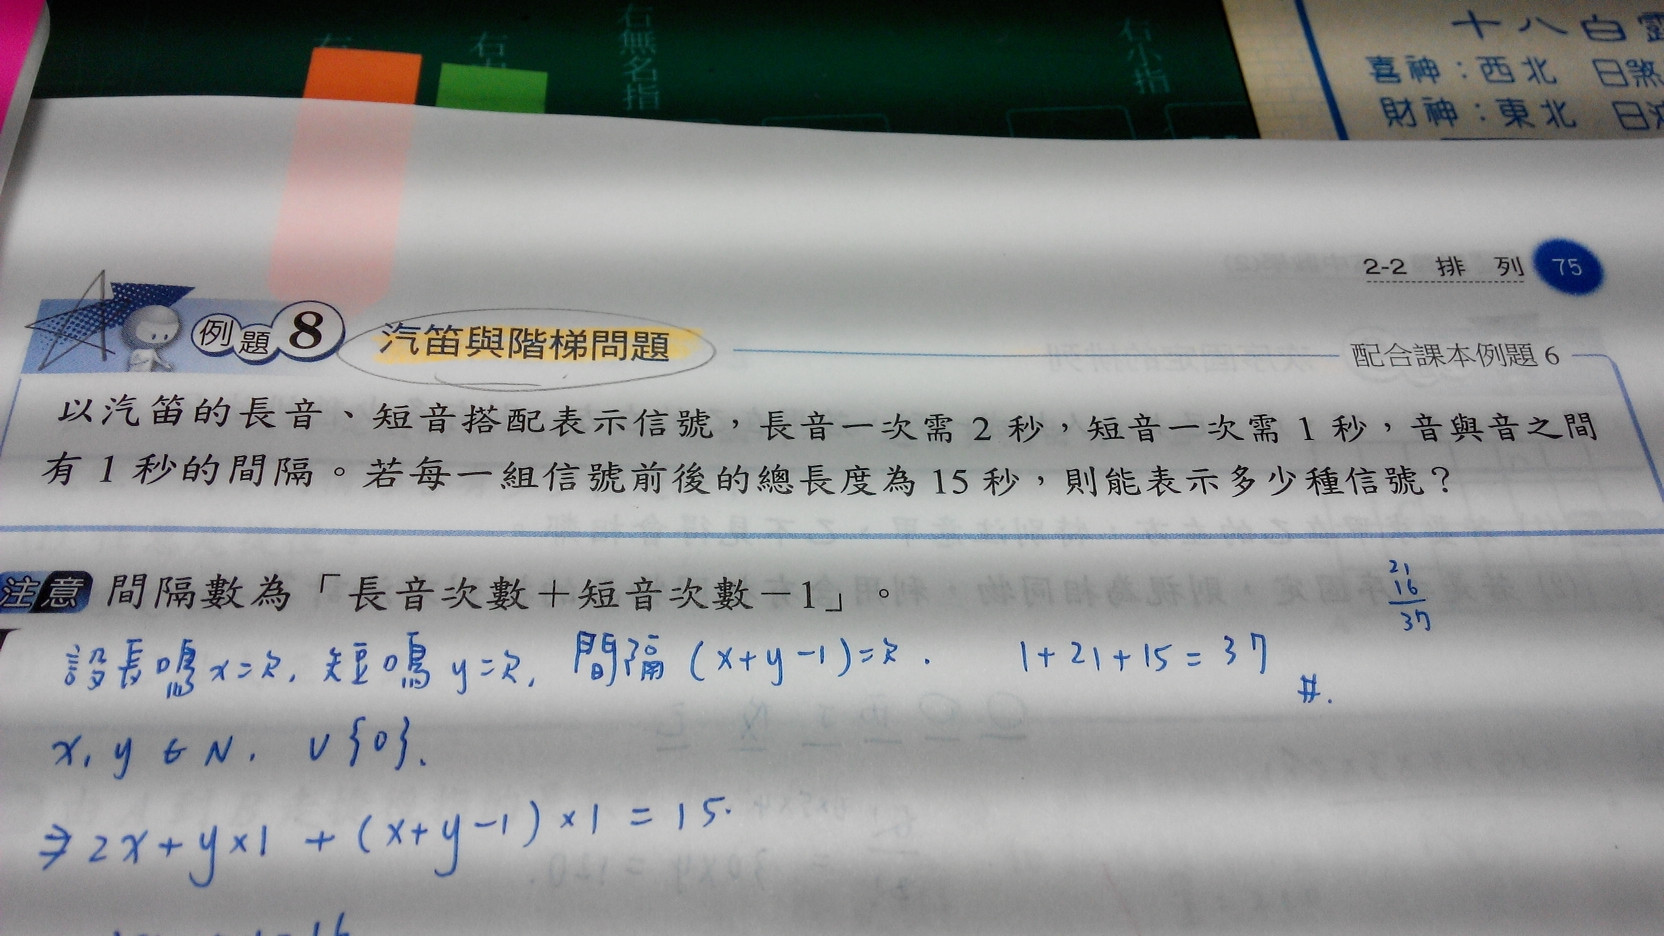 十八白露
喜神：西北 日煞
財神：東北 日
右
右
右無名指
右小指
2-2 排列 75
例題 8 汽笛與階梯問題 配合課本例題 6
以汽笛的長音、短音搭配表示信號，長音一次需 2 秒，短音一次需 1 秒，音與音之間
有 1 秒的間隔。若每一組信號前後的總長度為 15 秒，則能表示多少種信號？
注意 間隔數為「長音次數＋短音次數－1」。
21
16
37
設長鳴 x=次, 短鳴 y=次, 間隔 (x+y-1)=次. 1+21+15=37 #.
x, y ∈ N. ∪{0}.
⇒ 2x+y×1+(x+y-1)×1=15.